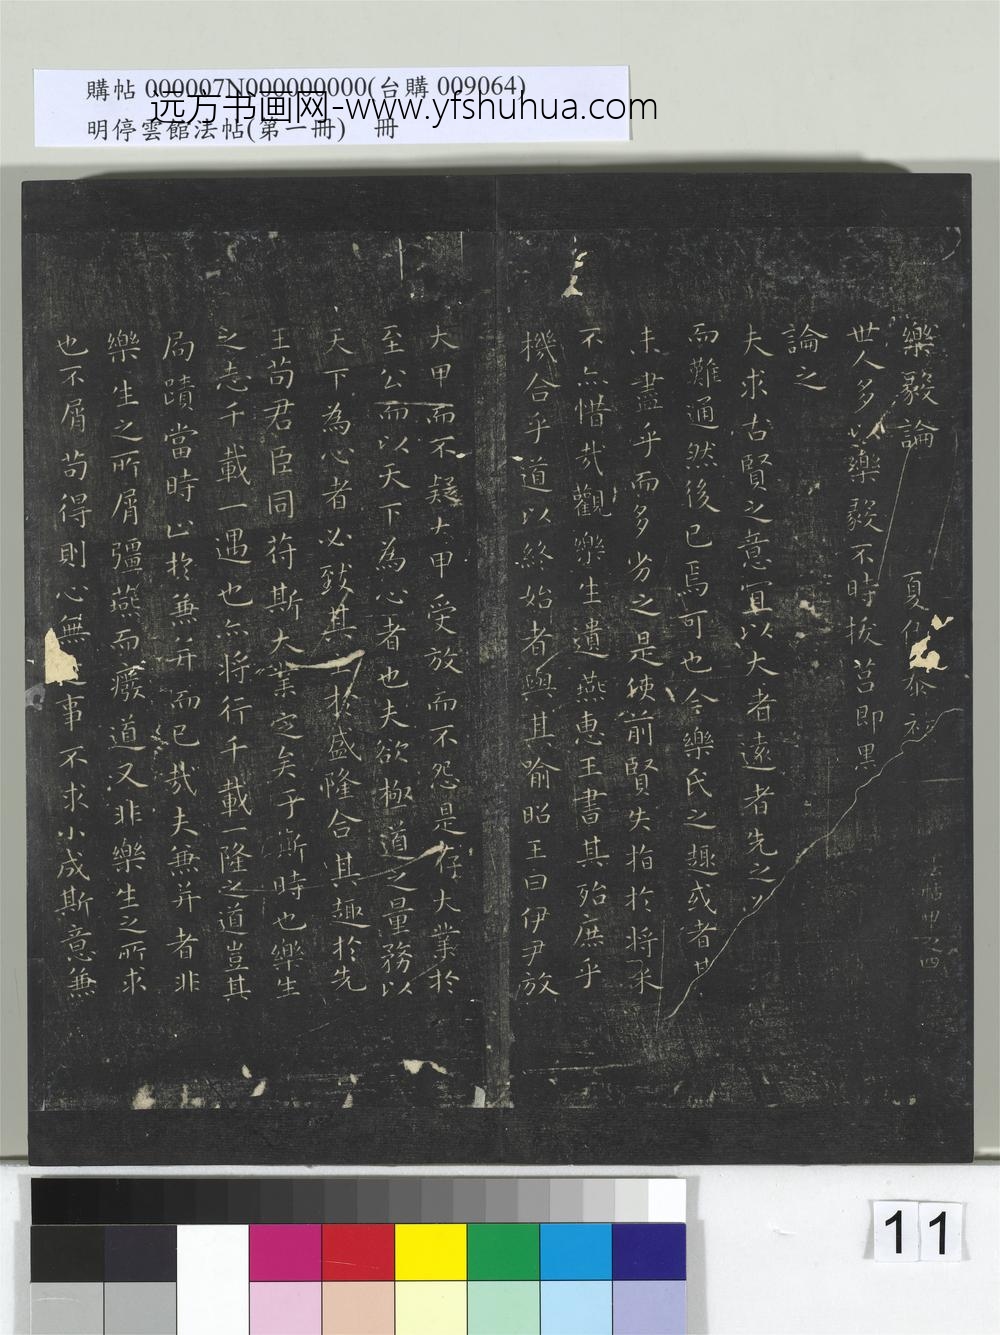 購帖 000007N000000000(台購 009064)
远方书画网-www.yfshuhua.com
明停雲館法帖(第一冊) 冊
樂毅論
夏侯泰初
世人多以樂毅不時拔莒即墨
論之
夫求古賢之意宜以大者遠者先之必
而難通然後已焉可也今樂氏之趣或者其
未盡乎而多劣之是使前賢失指於將來
不亦惜哉觀樂生遺燕惠王書其殆庶乎
機合乎道以終始者與其喻昭王曰伊尹放
大甲而不疑大甲受放而不怨是存大業於
至公而以天下為心者也夫欲極道之量務以
天下為心者必致其主於盛隆合其趣於先
王苟君臣同苻斯大業定矣于斯時也樂生
之志千載一遇也亦將行千載一隆之道豈其
局蹟當時止於兼并而已哉夫兼并者非
樂生之所屑彊燕而癈道又非樂生之所求
也不屑苟得則心無事不求小成斯意兼
11